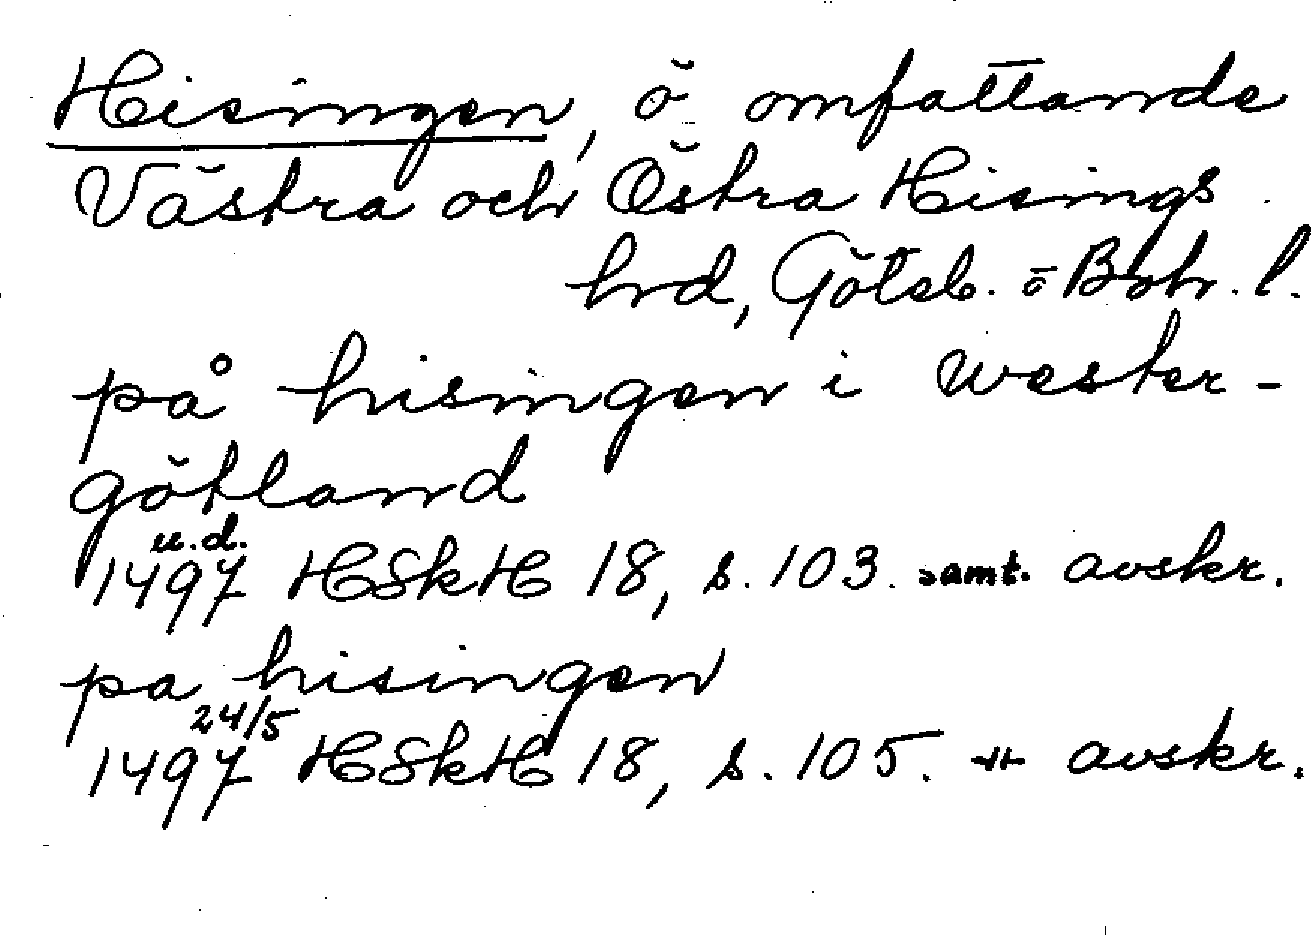 Hisingen, ö omfattande
Västra och Östra Hisings
hrd, Göteb. o Boh. l.
på hisingen i wester-
götland
u.d.
1497 HSkH 18, s. 103. samt. avskr.
pa hisingen
24/5
1497 HSkH 18, s. 105. -"- avskr.